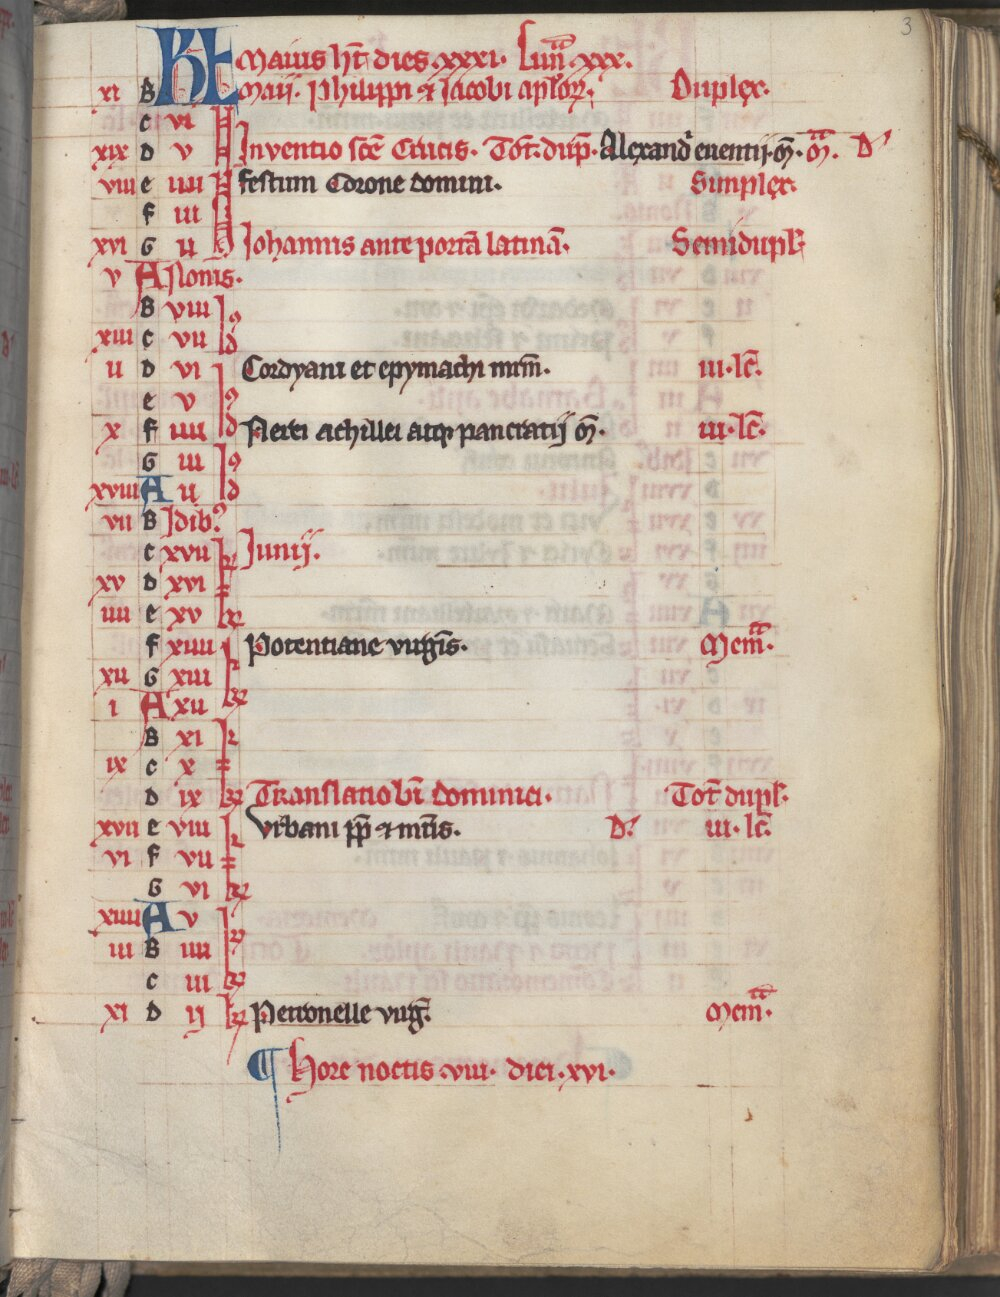 3
KL Maius ht̄ dies .xxxi. Lun̄a .xxx.
xi B Maii. Philippi ⁊ Iacobi aplōꝝ. Duplex.
c vi
xix D v Inventio scē Crucis. Tot̄. dup̄. Alexand' euentij. m̄. m̄. D'
viii e iiii Festum Corone domini. Simplex.
f iii
xvi G ii Iohannis ante portā latinā. Semidupl'
v A Nonis.
B viii Id'
xiii c vii
ii D vi Id' Cordyani et epymachi mr̄m. iii. lc̄.
e v
x f iiii Nerei achillei atqꝫ pancratij m̄. iii. lc̄.
G iii Id'
xviii A ii
vii B Idib'
c xvii kl' Iunij.
xv D xvi
iiii e xv
f xiiii kl' Potentiane virgīs. Mem̄.
xii G xiii
i A xii
B xi kl'
ix c x
D ix Translatio bī dominici. Tot̄ dupl'.
xvii e viii kl' Vrbani pp̄ ⁊ mr̄is. D'. iii. lc̄.
vi f vii
G vi
xiiii A v kl'
iii B iiii
c iii
xi D ij kl' Petronelle virḡ. Mem̄.
¶ Hore noctis .viii. diei .xvi.